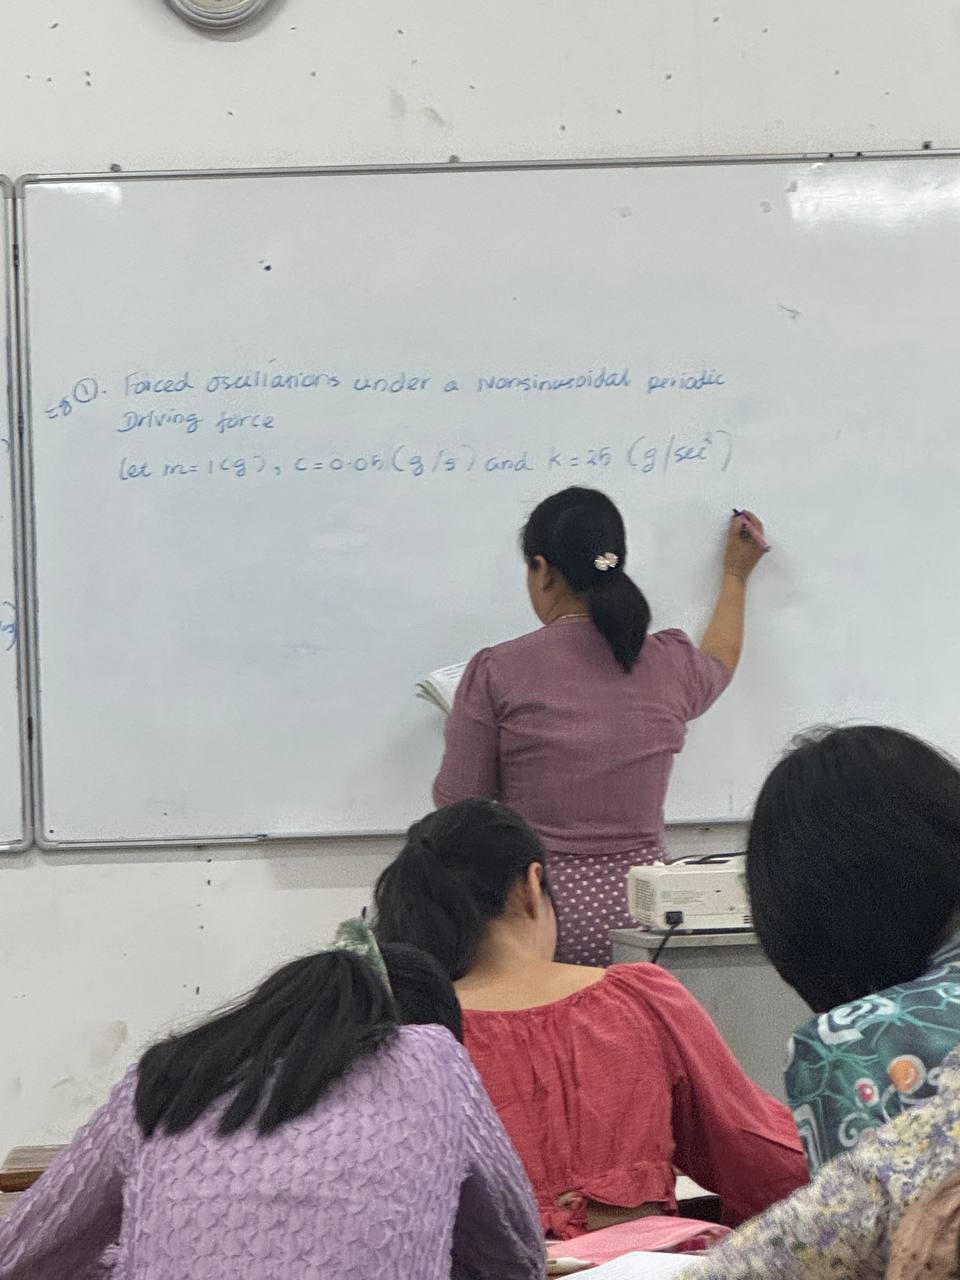 Eg ①. Forced oscillations under a Nonsinusoidal periodic
Driving force
let m=1(g), c=0.05(g/s) and k=25 (g/sec²)